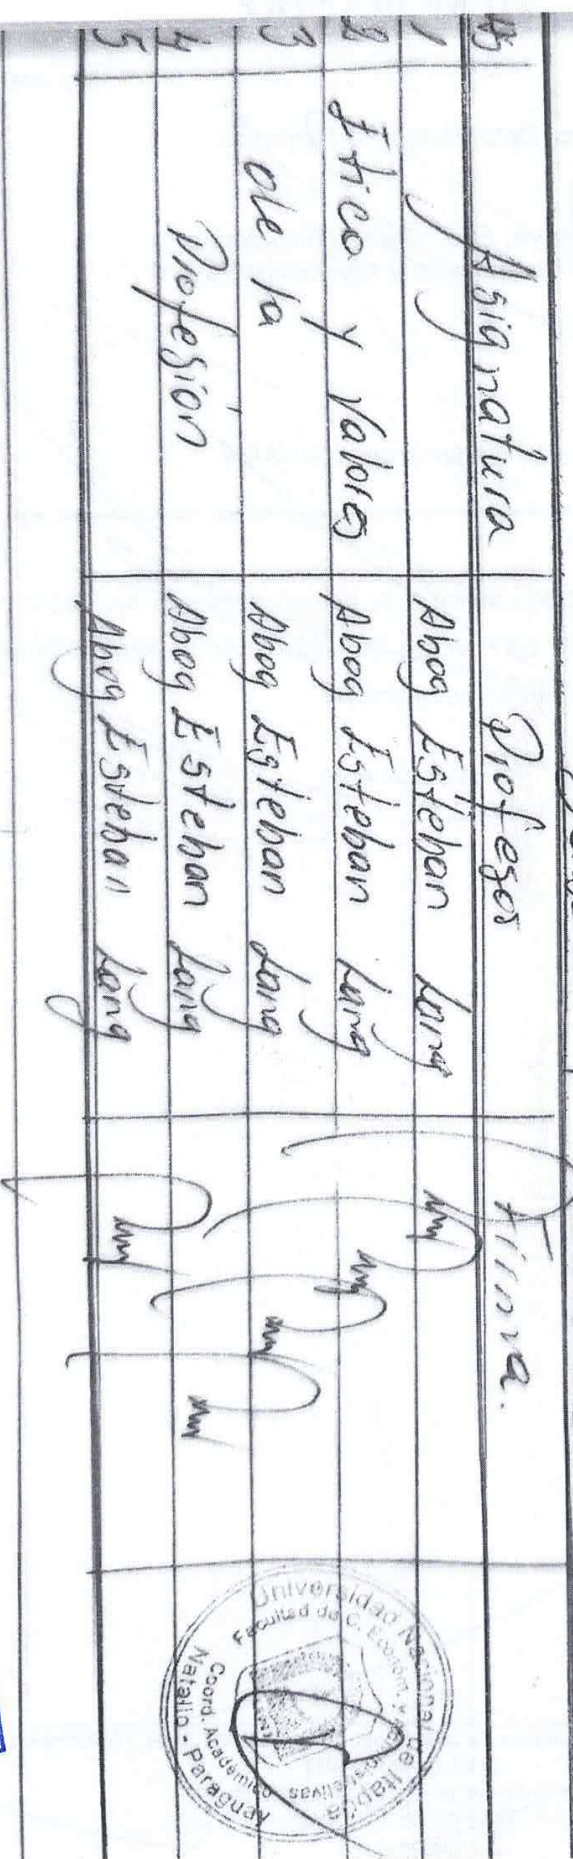 Asignatura Profesor Firma.
1 Abog Esteban Lang
2 Etica y Valores Abog Esteban Lang
3 de la Abog Esteban Lang
4 Profesión Abog Esteban Lang
5 Abog Esteban Lang
Universidad Nacional de Itapúa
Facultad de C. Económ. y Administrativas
Coord. Académico
Natalio - Paraguay